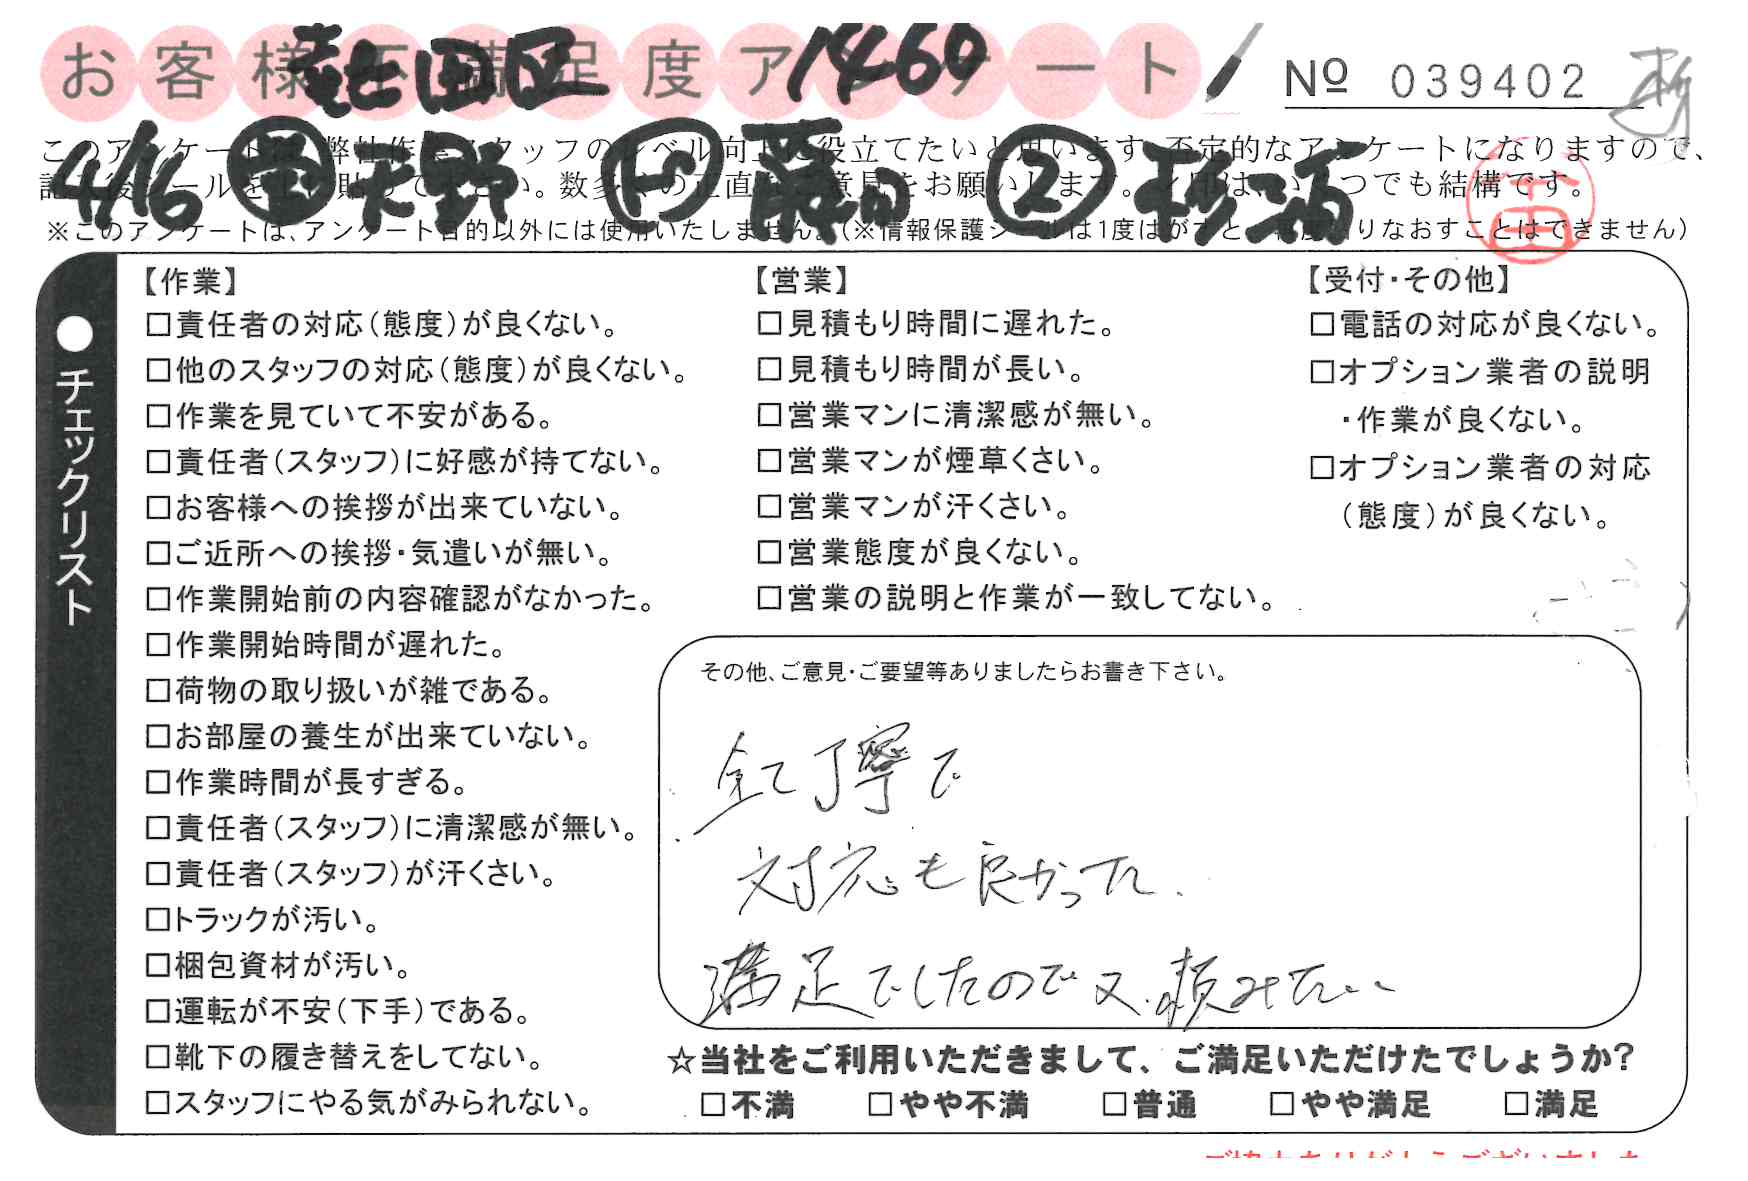 お客様不満足度アンケート
熱田区 1460
No 039402
4/16 営 大野 ド 藤田 2 杉浦
このアンケートは、弊社作業スタッフのレベル向上に役立てたいと思います。不定的なアンケートになりますので、
※このアンケートは、アンケート目的以外には使用いたしません。(※情報保護シールは1度はがすと、再度貼りなおすことはできません)
●チェックリスト
【作業】
□責任者の対応(態度)が良くない。
□他のスタッフの対応(態度)が良くない。
□作業を見ていて不安がある。
□責任者(スタッフ)に好感が持てない。
□お客様への挨拶が出来ていない。
□ご近所への挨拶・気遣いが無い。
□作業開始前の内容確認がなかった。
□作業開始時間が遅れた。
□荷物の取り扱いが雑である。
□お部屋の養生が出来ていない。
□作業時間が長すぎる。
□責任者(スタッフ)に清潔感が無い。
□責任者(スタッフ)が汗くさい。
□トラックが汚い。
□梱包資材が汚い。
□運転が不安(下手)である。
□靴下の履き替えをしてない。
□スタッフにやる気がみられない。
【営業】
□見積もり時間に遅れた。
□見積もり時間が長い。
□営業マンに清潔感が無い。
□営業マンが煙草くさい。
□営業マンが汗くさい。
□営業態度が良くない。
□営業の説明と作業が一致してない。
【受付・その他】
□電話の対応が良くない。
□オプション業者の説明
・作業が良くない。
□オプション業者の対応
(態度)が良くない。
その他、ご意見・ご要望等ありましたらお書き下さい。
全て丁寧で
対応も良かった.
満足でしたので又.頼みたい
☆当社をご利用いただきまして、ご満足いただけたでしょうか?
□不満 □やや不満 □普通 □やや満足 □満足